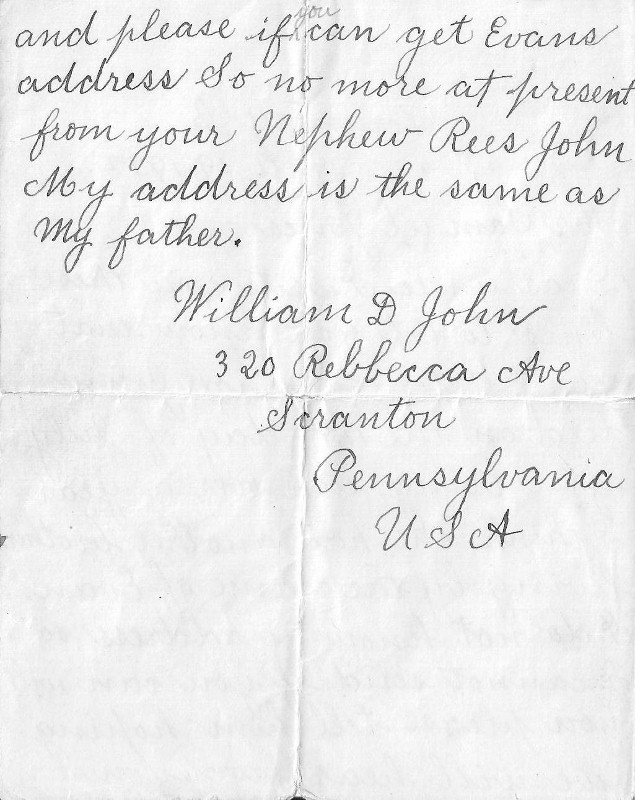 and please if you can get Evans
address So no more at present
from your Nephew Rees John
My address is the same as
My father.
William D John
320 Rebbecca Ave
Scranton
Pennsylvania
U S A